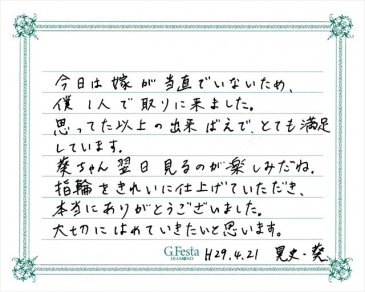 今日は嫁が当直でいないため、
僕1人で取りに来ました。
思ってた以上の出来ばえで、とても満足
しています。
葵ちゃん翌日見るのが楽しみだね。
指輪をきれいに仕上げていただき、
本当にありがとうございました。
大切にはめていきたいと思います。
G.Festa H29.4.21 晃史・葵
DIAMOND